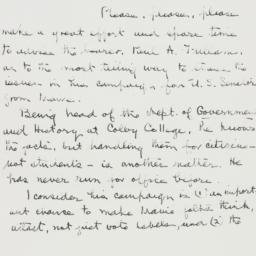 Please, please, please
make a great effort and spare time
to advise the bearer, Paul A. Fullam,
as to the most telling way to state the
issues in this campaign for U.S. Senator
from Maine.
Being head of the dept. of Governmen
and History at Colby College, he knows
the facts, but handling them for citizens -
not students - is another matter. He
has never run for office before.
I consider his campaign is (1) an import
ant chance to make Maine folks think,
attract, not just vote labels, and (2) the